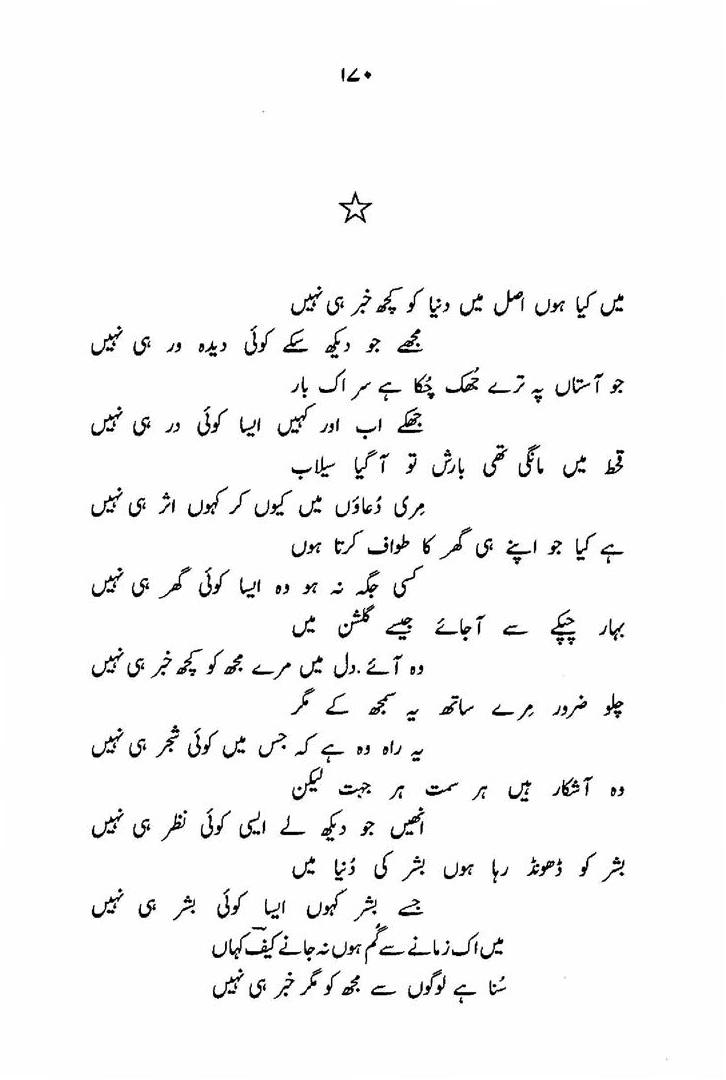 ۱۷۰
میں کیا ہوں اصل میں دنیا کو کچھ خبر ہی نہیں
مجھے جو دیکھ سکے کوئی دیدہ ور ہی نہیں
جو آستاں پہ ترے جُھک چُکا ہے سر اک بار
جھکے اب اور کہیں ایسا کوئی در ہی نہیں
قحط میں مانگی تھی بارش تو آ گیا سیلاب
مِری دُعاؤں میں کیوں کر کہوں اثر ہی نہیں
ہے کیا جو اپنے ہی گھر کا طواف کرتا ہوں
کسی جگہ نہ ہو وہ ایسا کوئی گھر ہی نہیں
بہار چپکے سے آجائے جیسے گلشن میں
وہ آئے دل میں مرے مجھ کو کچھ خبر ہی نہیں
چلو ضرور مِرے ساتھ یہ سمجھ کے مگر
یہ راہ وہ ہے کہ جس میں کوئی شجر ہی نہیں
وہ آشکار ہیں ہر سمت ہر جہت لیکن
انھیں جو دیکھ لے ایسی کوئی نظر ہی نہیں
بشر کو ڈھونڈ رہا ہوں بشر کی دُنیا میں
جسے بشر کہوں ایسا کوئی بشر ہی نہیں
میں اک زمانے سے گُم ہوں نہ جانے کیفؔ کہاں
سُنا ہے لوگوں سے مجھ کو مگر خبر ہی نہیں